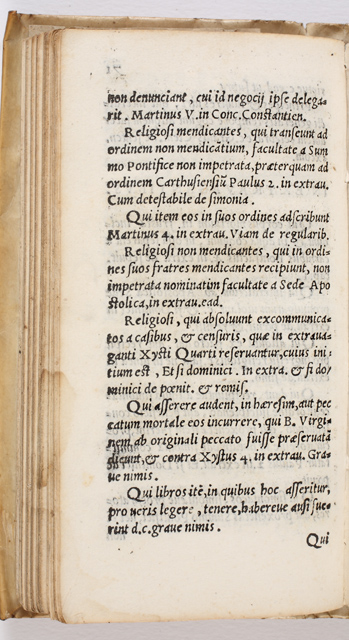 non denunciant, cui id negocij ipse delega-
rit. Martinus V. in Conc. Constantien.
Religiosi mendicantes, qui transeunt ad
ordinem non mendicãtium, facultate a Sum
mo Pontifice non impetrata, præterquam ad
ordinem Carthusiensiũ Paulus 2. in extrau.
Cum detestabile de simonia.
Qui item eos in suos ordines adscribunt
Martinus 4. in extrau. Viam de regularib.
Religiosi non mendicantes, qui in ordi-
nes suos fratres mendicantes recipiunt, non
impetrata nominatim facultate a Sede Apo
stolica, in extrau. ead.
Religiosi, qui absoluunt excommunica-
tos a casibus, & censuris, quæ in extraua-
ganti Xysti Quarti reseruantur, cuius ini-
tium est, Et si dominici. In extra. & si do/
minici de pœnit. & remiss.
Qui asserere audent, in hæresim, aut pec
catum mortale eos incurrere, qui B. Virgi-
nem ab originali peccato fuisse præseruatã
dicunt, & contra Xystus 4. in extrau. Gra-
ue nimis.
Qui libros itẽ, in quibus hoc asseritur,
pro ueris legere, tenere, habereue ausi fue-
rint d.c. graue nimis.
Qui